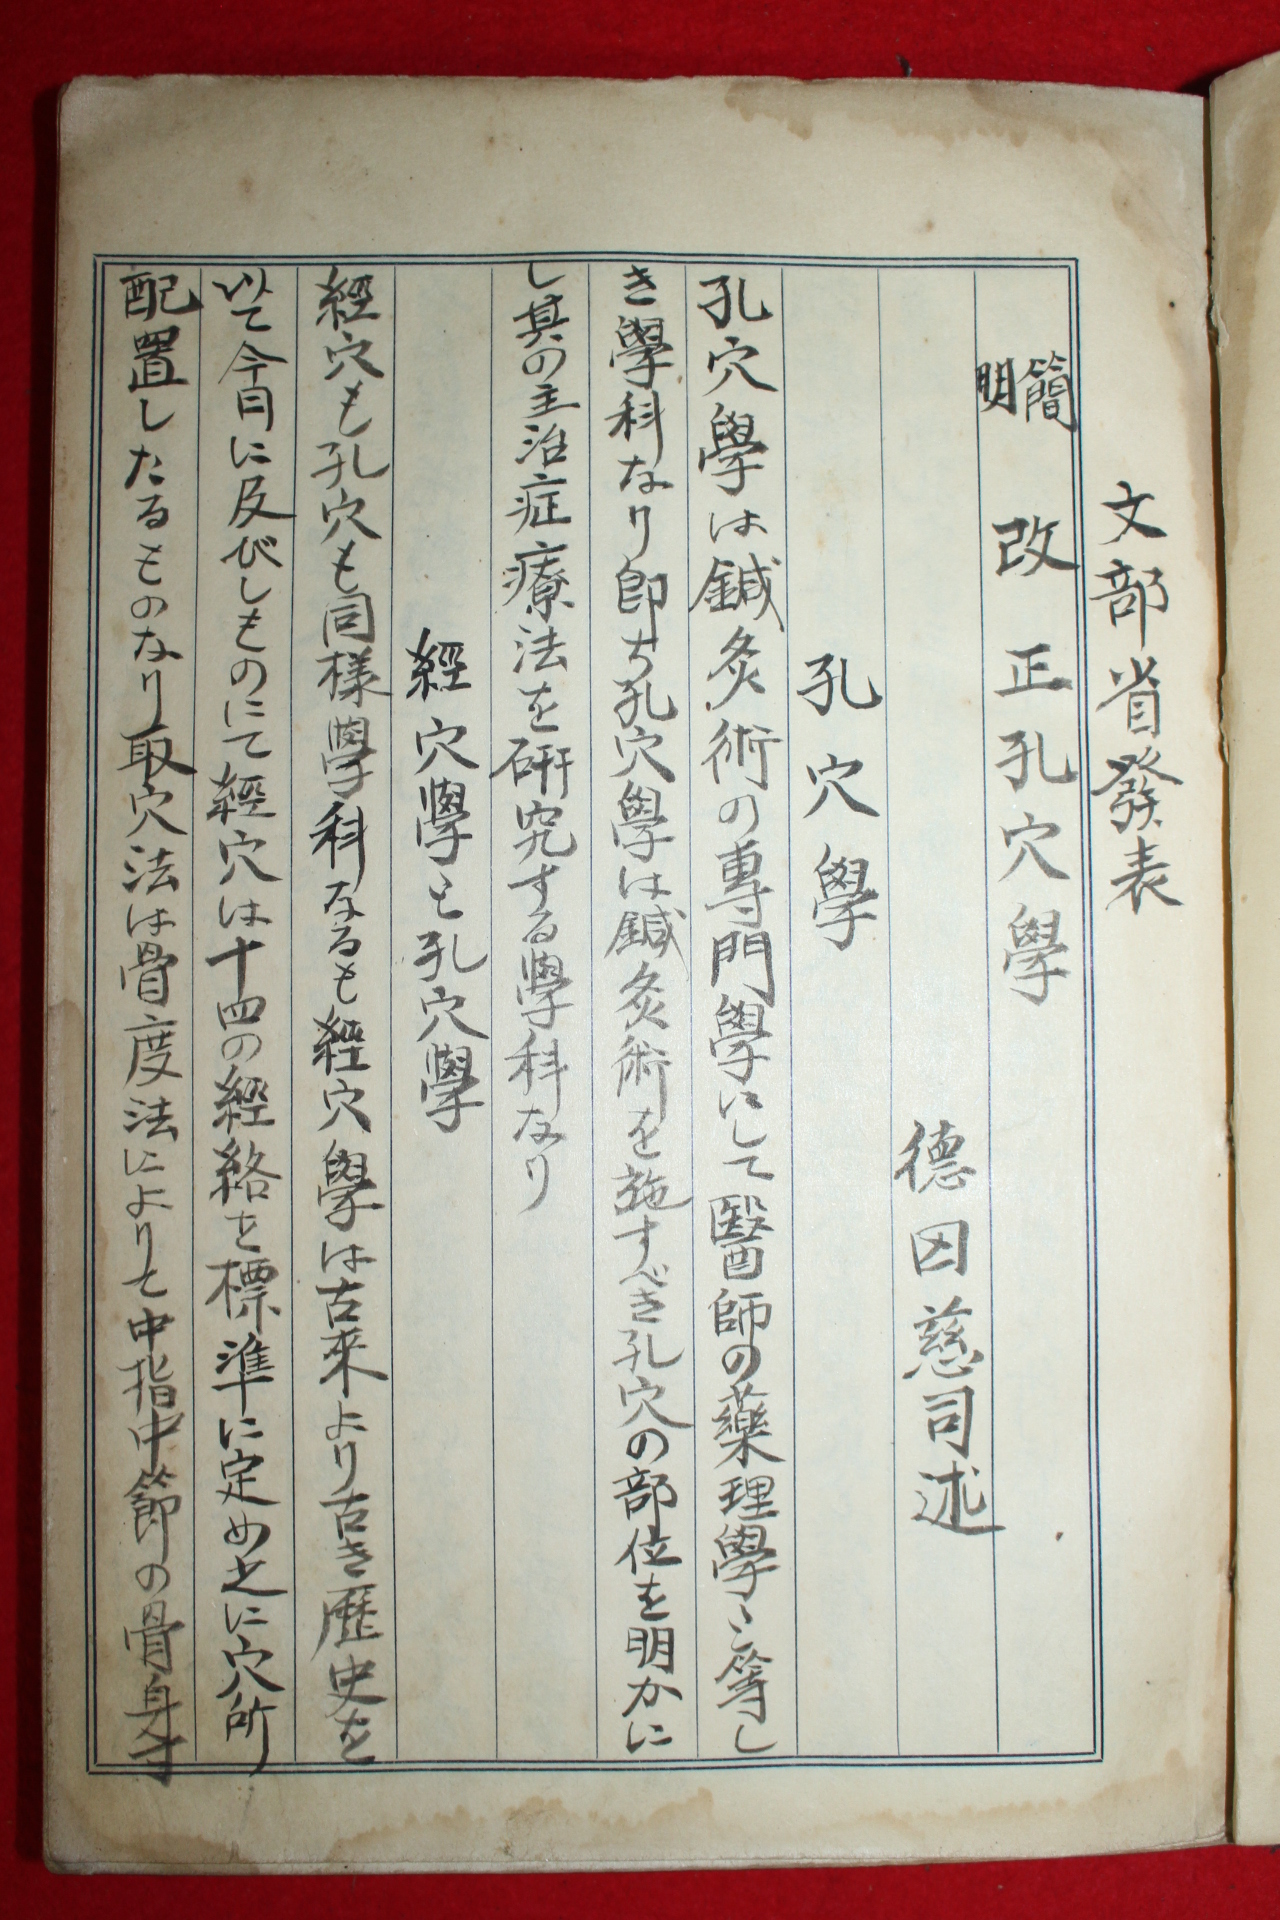 文部省發表
簡明 改正孔穴學
德田慈司述
孔穴學
孔穴學は鍼灸術の專門學にして醫師の藥理學と等し
き學科なり即ち孔穴學は鍼灸術を施すべき孔穴の部位を明かに
し其の主治症療法を硏究する學科なり
經穴學と孔穴學
經穴も孔穴も同樣學科なるも經穴學は古來より古き歷史を
以て今日に及びしものにて經穴は十四の經絡を標準に定め之に穴所
配置したるものなり取穴法は骨度法によりて中指中節の骨身寸